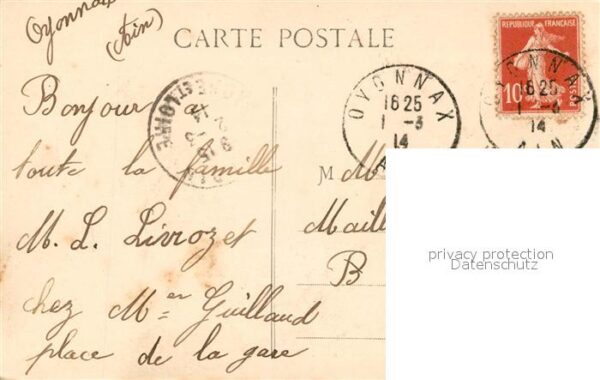 Oyonnax
(Ain)
CARTE POSTALE
REPUBLIQUE FRANÇAISE
10
POSTES
OYONNAX
16 25
1 - 3
14
OYONNAX
16 25
14
AIN
Bonjour a
toute la famille
M. L. Livrozet
chez Men Guilland
place de la gare
M
Maill
B
privacy protection
Datenschutz